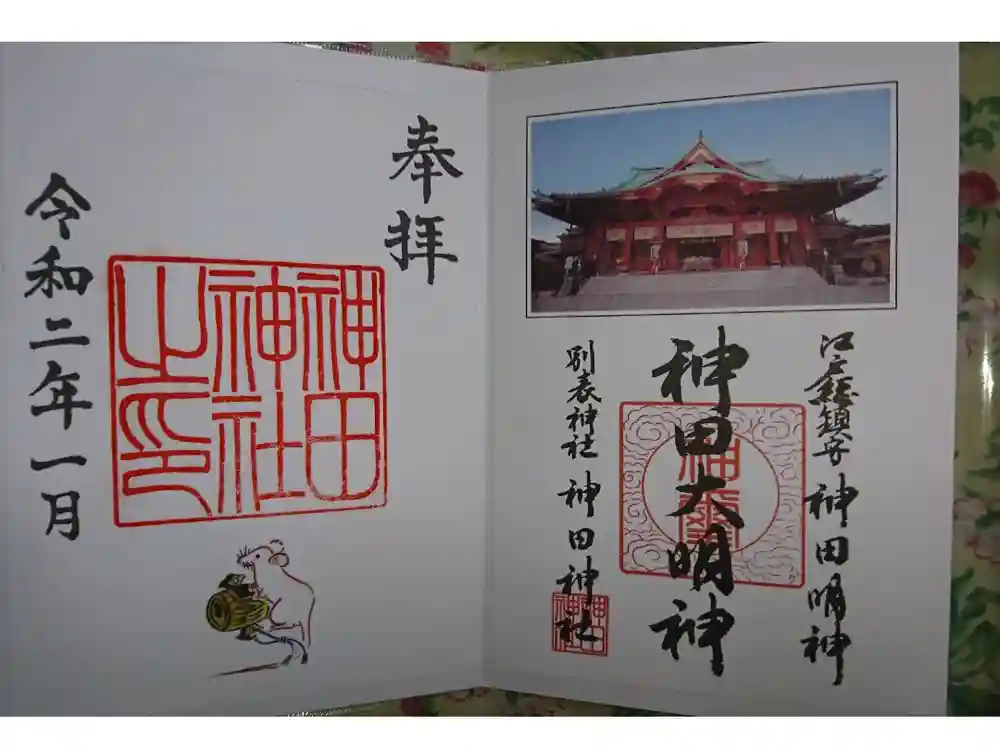 江戸總鎮守 神田明神
神田大明神
別表神社 神田神社
神田
神社
奉拝
神田
神社
之印
令和二年一月